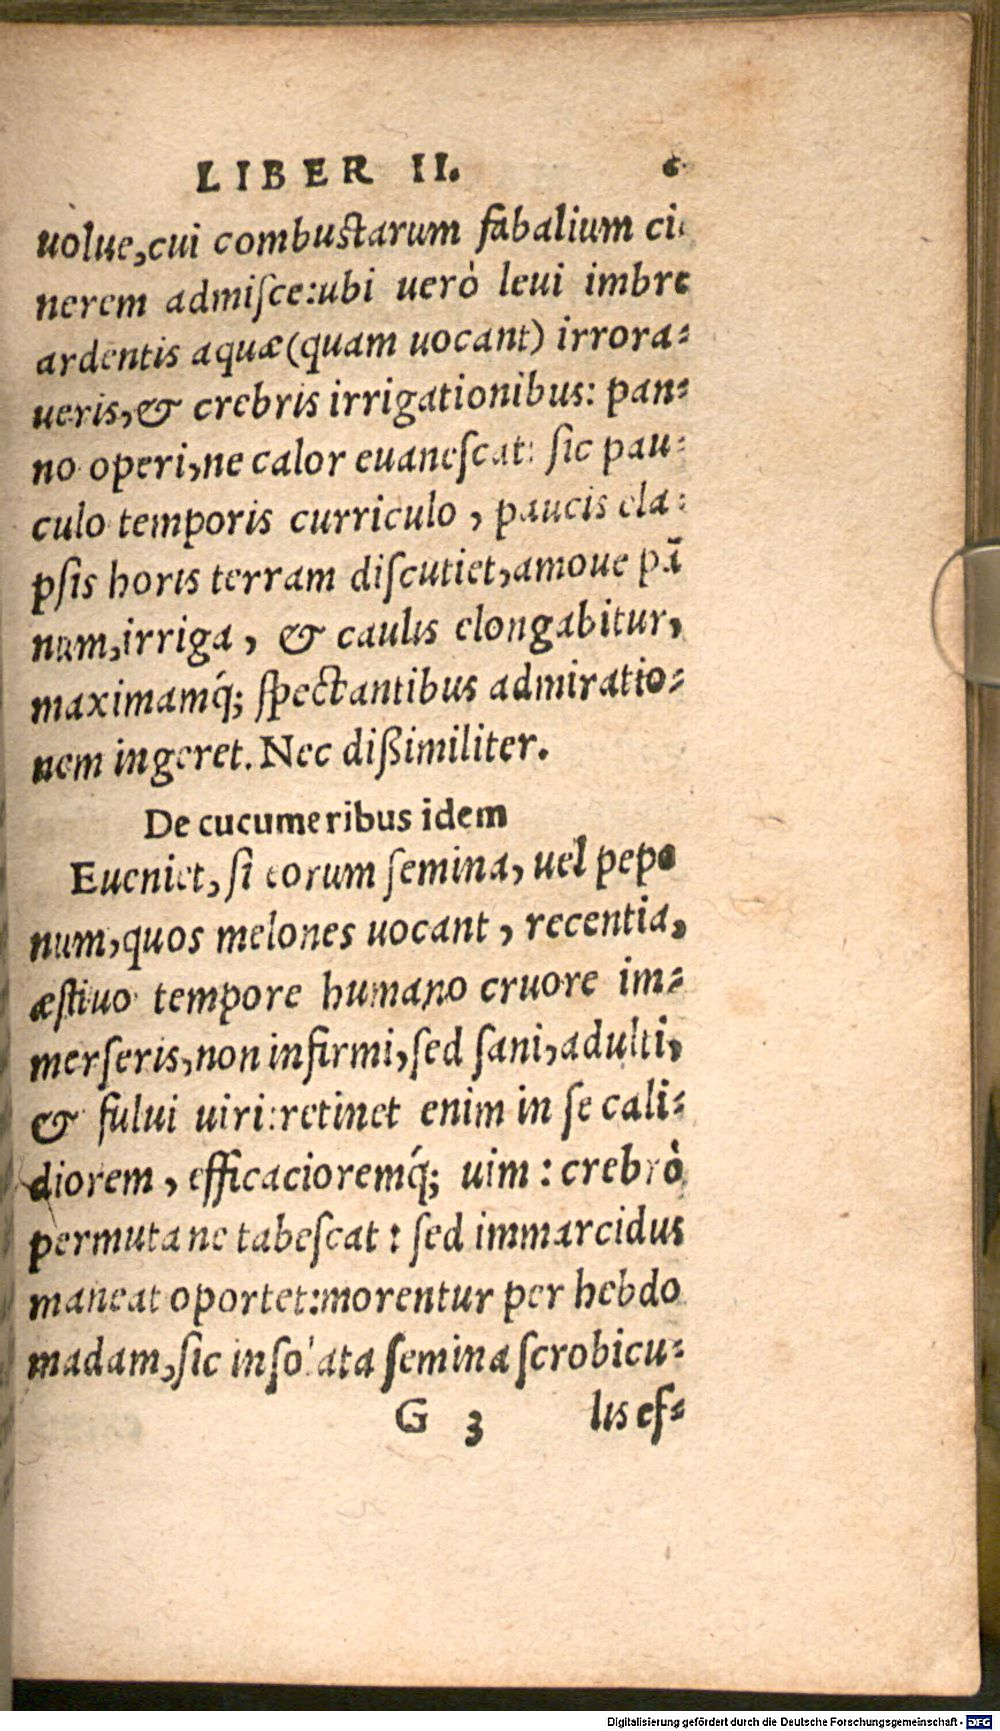 LIBER II. 6
uolue,cui combustarum fabalium ci
nerem admisce:ubi uerò leui imbre
ardentis aquæ(quam uocant) irrora-
ueris,& crebris irrigationibus: pan-
no operi,ne calor euanescat: sic pau-
culo temporis curriculo, paucis ela-
psis horis terram discutiet,amoue pā
num,irriga, & caulis elongabitur,
maximamq́; spectantibus admiratio-
nem ingeret. Nec dißimiliter.
De cucumeribus idem
Eueniet, si eorum semina, uel pepo
num,quos melones uocant, recentia,
æstiuo tempore humano cruore im-
merseris,non infirmi,sed sani,adulti,
& fului uiri:retinet enim in se cali-
diorem, efficacioremq́; uim: crebrò
permuta ne tabescat: sed immarcidus
maneat oportet:morentur per hebdo
madam,sic insolata semina scrobicu-
G 3 lis ef-
Digitalisierung gefördert durch die Deutsche Forschungsgemeinschaft - DFG